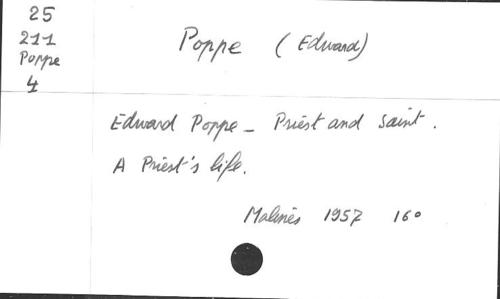 25
211
Poppe
4
Poppe (Edward)
Edward Poppe - Priest and Saint.
A Priest's life.
Malines 1957 16°